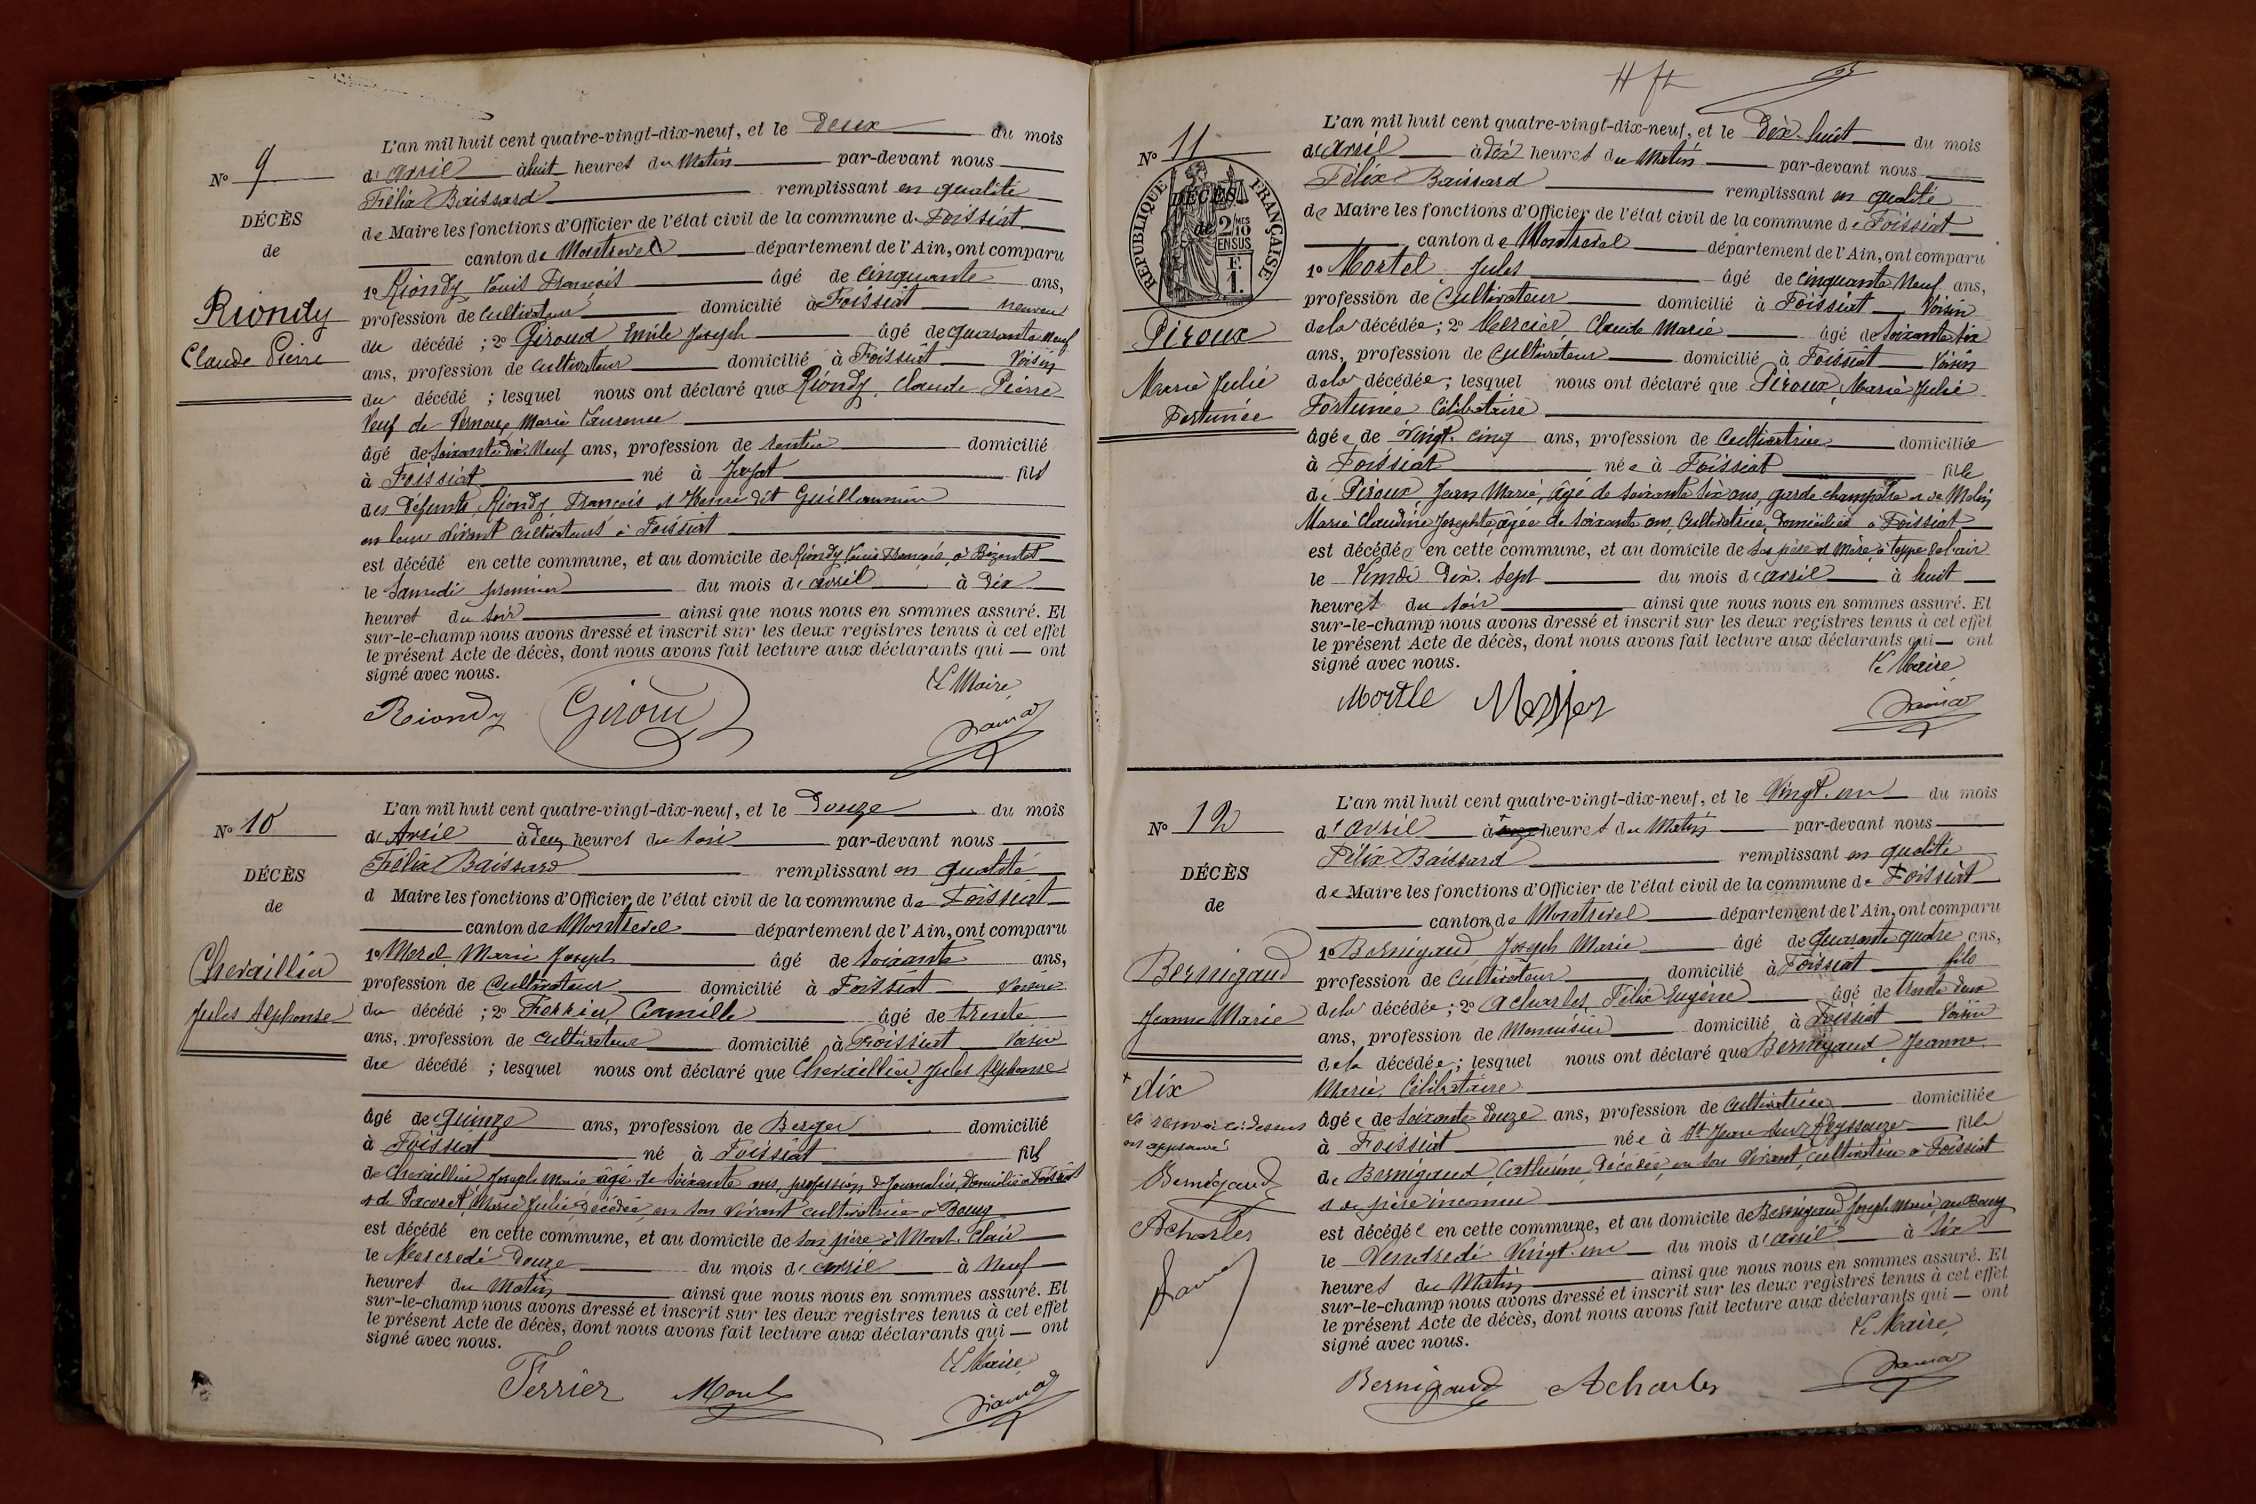 N° 9
DÉCÈS
de
Riondy
Claude Pierre
L'an mil huit cent quatre-vingt-dix-neuf, et le deux du mois
d'avril à huit heures du Matin par-devant nous
Félix Baissard remplissant en qualité
de Maire les fonctions d'Officier de l'état civil de la commune de Foissiat
canton de Montrevel département de l'Ain, ont comparu
1° Riondy Louis François âgé de cinquante ans,
profession de cultivateur domicilié à Foissiat neveu
du décédé ; 2° Giroud Emile Joseph âgé de quarante neuf
ans, profession de cultivateur domicilié à Foissiat Voisin
du décédé ; lesquel nous ont déclaré que Riondy, Claude Pierre
Veuf de Vernoux Marie Laurence
âgé de soixante dix Neuf ans, profession de rentier domicilié
à Foissiat né à Jayat fils
des défunts Riondy, François et Henri dit Guillaumin
en leur vivant cultivateurs à Foissiat
est décédé en cette commune, et au domicile de Riondy Louis François, à
le Samedi premier du mois d'avril à Dix
heures du soir ainsi que nous nous en sommes assuré. Et
sur-le-champ nous avons dressé et inscrit sur les deux registres tenus à cet effet
le présent Acte de décès, dont nous avons fait lecture aux déclarants qui — ont
signé avec nous.
Le Maire,
Riondy Giroud
N° 10
DÉCÈS
de
Chevaillier
Jules Alphonse
L'an mil huit cent quatre-vingt-dix-neuf, et le Douze du mois
d'Avril à deux heures du soir par-devant nous
Félix Baissard remplissant en qualité
d Maire les fonctions d'Officier de l'état civil de la commune de Foissiat
canton de Montrevel département de l'Ain, ont comparu
1° Morel Marie Joseph âgé de soixante ans,
profession de Cultivateur domicilié à Foissiat Voisin
du décédé ; 2° Ferrier Camille âgé de trente
ans, profession de cultivateur domicilié à Foissiat Voisin
du décédé ; lesquel nous ont déclaré que Chevaillier Jules Alphonse
âgé de Quinze ans, profession de Berger domicilié
à Foissiat né à Foissiat fils
de Chevaillier Joseph Marie âgé de soixante ans, profession de Journalier, Domicilié à Foissiat
et de Pacoret, Marie Julie, décédée, en son vivant cultivatrice à Bourg
est décédé en cette commune, et au domicile de son père à Mont Clair
le Mercredi Douze du mois d'avril à Neuf
heures du Matin ainsi que nous nous en sommes assuré. Et
sur-le-champ nous avons dressé et inscrit sur les deux registres tenus à cet effet
le présent Acte de décès, dont nous avons fait lecture aux déclarants qui — ont
signé avec nous.
Le Maire,
Ferrier Morel
N° 11
RÉPUBLIQUE FRANÇAISE
DÉCÈS
de
2/10 EN SUS
F. 1.
Piroux
Marie Julie
Fortunée
L'an mil huit cent quatre-vingt-dix-neuf, et le Dix-huit du mois
d'avril à dix heures du Matin par-devant nous
Félix Baissard remplissant en qualité
de Maire les fonctions d'Officier de l'état civil de la commune de Foissiat
canton de Montrevel département de l'Ain, ont comparu
1° Mortel Jules âgé de cinquante Neuf ans,
profession de Cultivateur domicilié à Foissiat Voisin
de la décédée ; 2° Mercier Claude Marie âgé de soixante six
ans, profession de cultivateur domicilié à Foissiat Voisin
de la décédée ; lesquel nous ont déclaré que Piroux Marie Julie
Fortunée Célibataire
âgée de Vingt cinq ans, profession de Cultivatrice domiciliée
à Foissiat née à Foissiat fille
de Piroux Jean Marie, âgé de soixante six ans, garde champêtre et de Molin
Marie Claudine Josephte, âgée de soixante ans, Cultivatrice, Domiciliés à Foissiat
est décédée en cette commune, et au domicile de ses père et mère à
le Lundi Dix-sept du mois d'avril à huit
heures du soir ainsi que nous nous en sommes assuré. Et
sur-le-champ nous avons dressé et inscrit sur les deux registres tenus à cet effet
le présent Acte de décès, dont nous avons fait lecture aux déclarants qui — ont
signé avec nous.
Le Maire,
N° 12
DÉCÈS
de
Bernigaud
Jeanne Marie
+ dix
le renvoi ci-dessus
est approuvé
Bernigaud
Acharles
L'an mil huit cent quatre-vingt-dix-neuf, et le Vingt-un du mois
d'avril à heures du Matin par-devant nous
Félix Baissard remplissant en qualité
de Maire les fonctions d'Officier de l'état civil de la commune de Foissiat
canton de Montrevel département de l'Ain, ont comparu
1° Bernigaud Joseph Marie âgé de quarante quatre ans,
profession de Cultivateur domicilié à Foissiat fils
de la décédée ; 2° Acharles, Félix Eugène âgé de trente deux
ans, profession de Menuisier domicilié à Foissiat Voisin
de la décédée ; lesquel nous ont déclaré que Bernigaud Jeanne
Marie, Célibataire
âgée de soixante douze ans, profession de cultivatrice domiciliée
à Foissiat née à St Jean sur Reyssouze fille
de Bernigaud, Catherine, Décédée, en son vivant, cultivatrice à Foissiat
et de père inconnu
est décédée en cette commune, et au domicile de Bernigaud Joseph Marie, au Bourg
le Vendredi Vingt-un du mois d'avril à Six
heures du Matin ainsi que nous nous en sommes assuré. Et
sur-le-champ nous avons dressé et inscrit sur les deux registres tenus à cet effet
le présent Acte de décès, dont nous avons fait lecture aux déclarants qui — ont
signé avec nous.
Le Maire,
Bernigaud Acharles